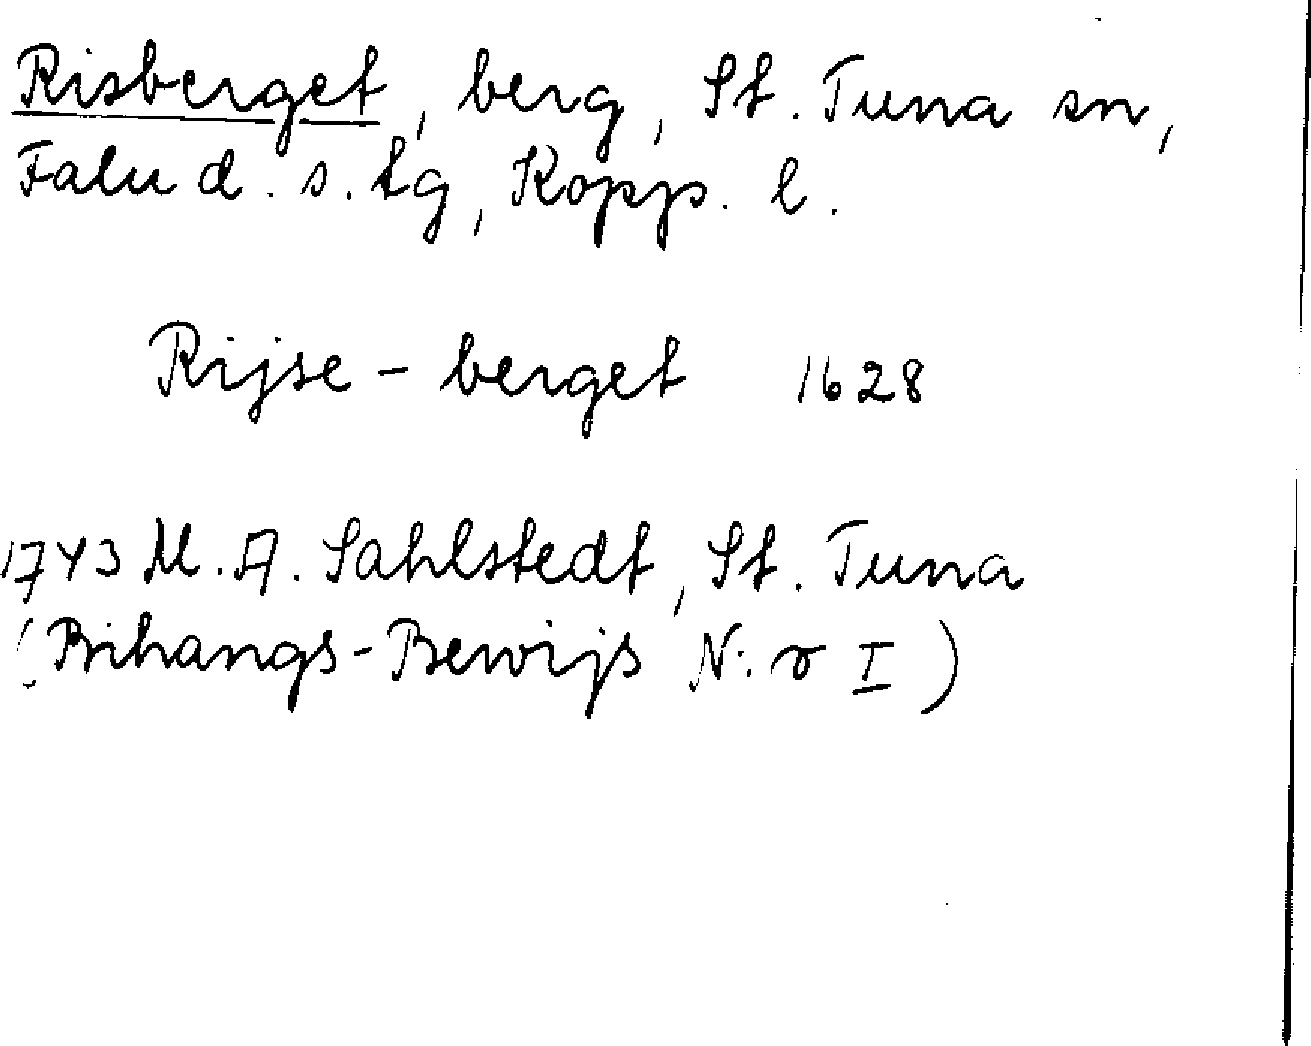 Risberget, berg, St. Tuna sn,
Falu d. s. tg, Kopp. l.
Rijse - berget 1628
1743 M. A. Sahlstedt, St. Tuna
(Bihangs-Bewijs N:r I)